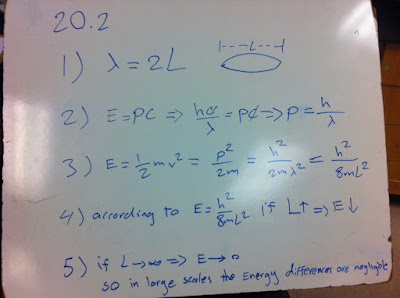 20.2
|---L---|
1) λ = 2L
2) E = PC ⇒ hc/λ = PC → P = h/λ
3) E = 1/2 mv² = P²/2m = h²/2mλ² = h²/8mL²
4) according to E = h²/8mL² if L↑ ⇒ E↓
5) if L→∞ ⇒ E→0
so in large scales the Energy differences are negligible